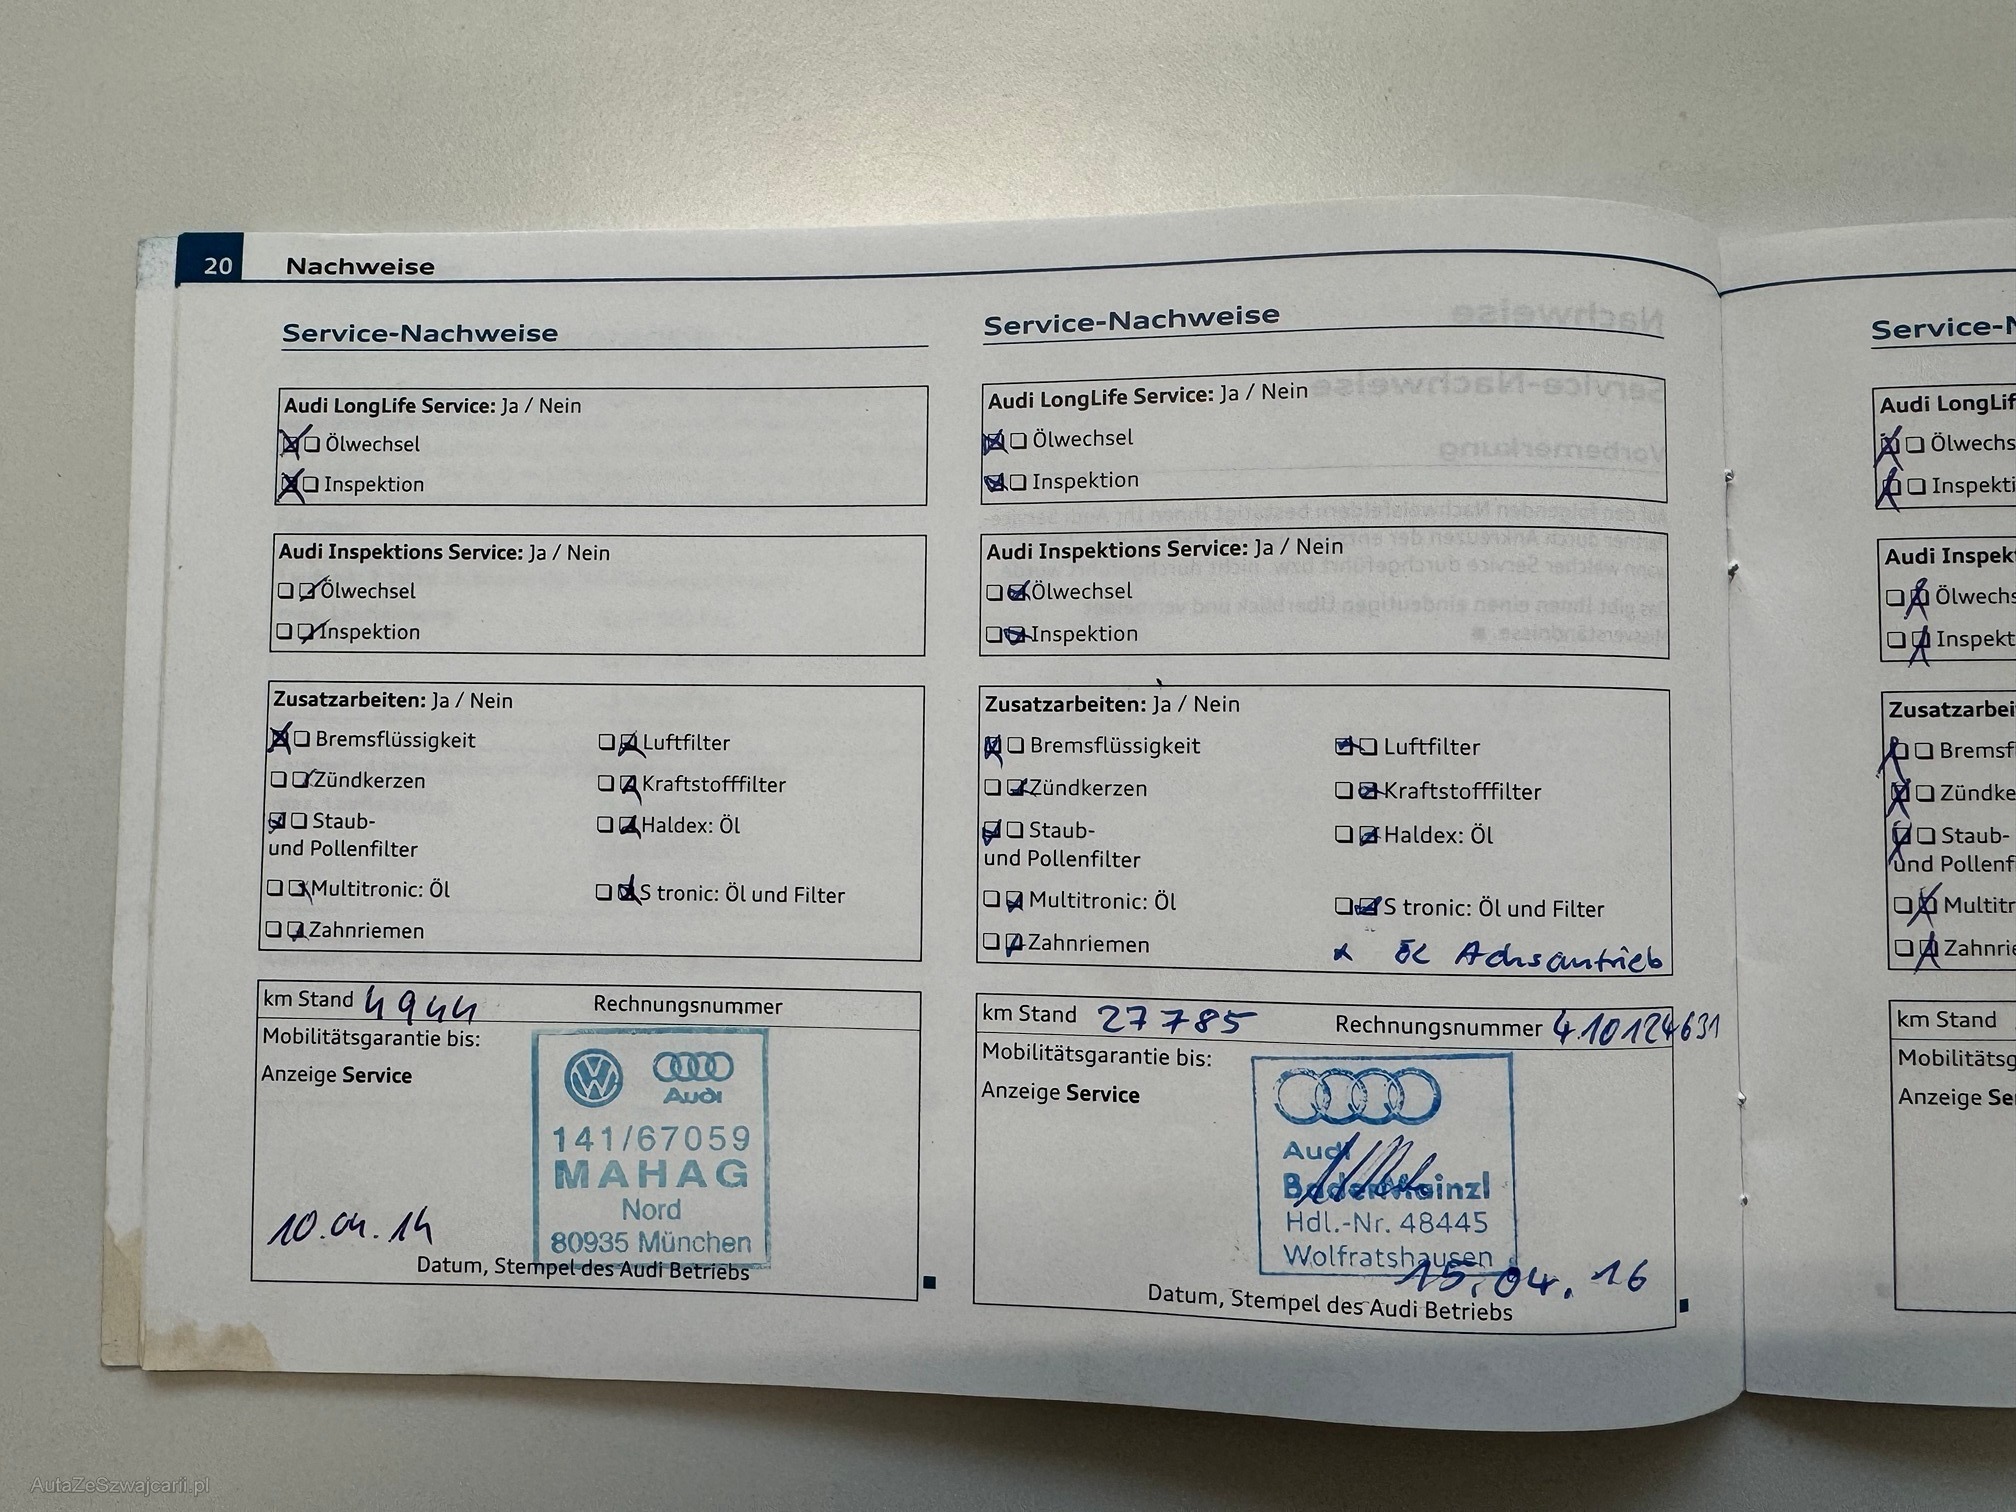 20 Nachweise
Service-Nachweise
Audi LongLife Service: Ja / Nein
Ölwechsel
Inspektion
Audi Inspektions Service: Ja / Nein
Ölwechsel
Inspektion
Zusatzarbeiten: Ja / Nein
Bremsflüssigkeit Luftfilter
Zündkerzen Kraftstofffilter
Staub- Haldex: Öl
und Pollenfilter
Multitronic: Öl S tronic: Öl und Filter
Zahnriemen
km Stand 4944 Rechnungsnummer
Mobilitätsgarantie bis:
Anzeige Service
Audi
141/67059
MAHAG
Nord
80935 München
10.04.14
Datum, Stempel des Audi Betriebs
Service-Nachweise
Audi LongLife Service: Ja / Nein
Ölwechsel
Inspektion
Audi Inspektions Service: Ja / Nein
Ölwechsel
Inspektion
Zusatzarbeiten: Ja / Nein
Bremsflüssigkeit Luftfilter
Zündkerzen Kraftstofffilter
Staub- Haldex: Öl
und Pollenfilter
Multitronic: Öl S tronic: Öl und Filter
Zahnriemen x Öl Achsantrieb
km Stand 27785 Rechnungsnummer 410124631
Mobilitätsgarantie bis:
Anzeige Service
Audi
BaderMainzl
Hdl.-Nr. 48445
Wolfratshausen
15.04.16
Datum, Stempel des Audi Betriebs
Service-N
Audi LongLif
Ölwechs
Inspekti
Audi Inspek
Ölwechs
Inspekt
Zusatzarbei
Bremsfl
Zündke
Staub-
und Pollenf
Multitr
Zahnrie
km Stand
Mobilitätsg
Anzeige Se
AutaZeSzwajcarii.pl